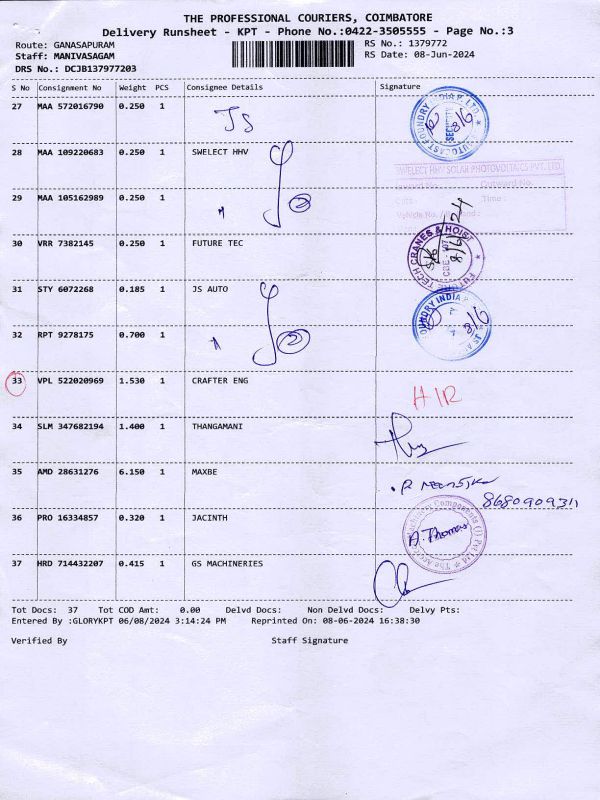 THE PROFESSIONAL COURIERS, COIMBATORE
Delivery Runsheet - KPT - Phone No.:0422-3505555 - Page No.:3
Route: GANASAPURAM RS No.: 1379772
Staff: MANIVASAGAM RS Date: 08-Jun-2024
DRS No.: DCJB137977203
S No Consignment No Weight PCS Consignee Details Signature
27 MAA 572016790 0.250 1 JS
AUTOCAST FOUNDRY INDIA P. LTD.
SECURITY
8/6
28 MAA 109220683 0.250 1 SWELECT HHV
SWELECT HHV SOLAR PHOTOVOLTAICS PVT. LTD.
Outward No.
29 MAA 105162989 0.250 1
Date : Time :
Vehicle No. / Hand :
30 VRR 7382145 0.250 1 FUTURE TEC
FUTURE TECH CRANES & HOIST
8/6/24
31 STY 6072268 0.185 1 JS AUTO
FOUNDRY INDIA P
8/6
32 RPT 9278175 0.700 1
33 VPL 522020969 1.530 1 CRAFTER ENG
H/R
34 SLM 347682194 1.400 1 THANGAMANI
35 AMD 28631276 6.150 1 MAXBE
8680909311
36 PRO 16334857 0.320 1 JACINTH
Machinery Components (I) Pvt Ltd
A. Thomas
37 HRD 714432207 0.415 1 GS MACHINERIES
Tot Docs: 37 Tot COD Amt: 0.00 Delvd Docs: Non Delvd Docs: Delvy Pts:
Entered By :GLORYKPT 06/08/2024 3:14:24 PM Reprinted On: 08-06-2024 16:38:30
Verified By Staff Signature